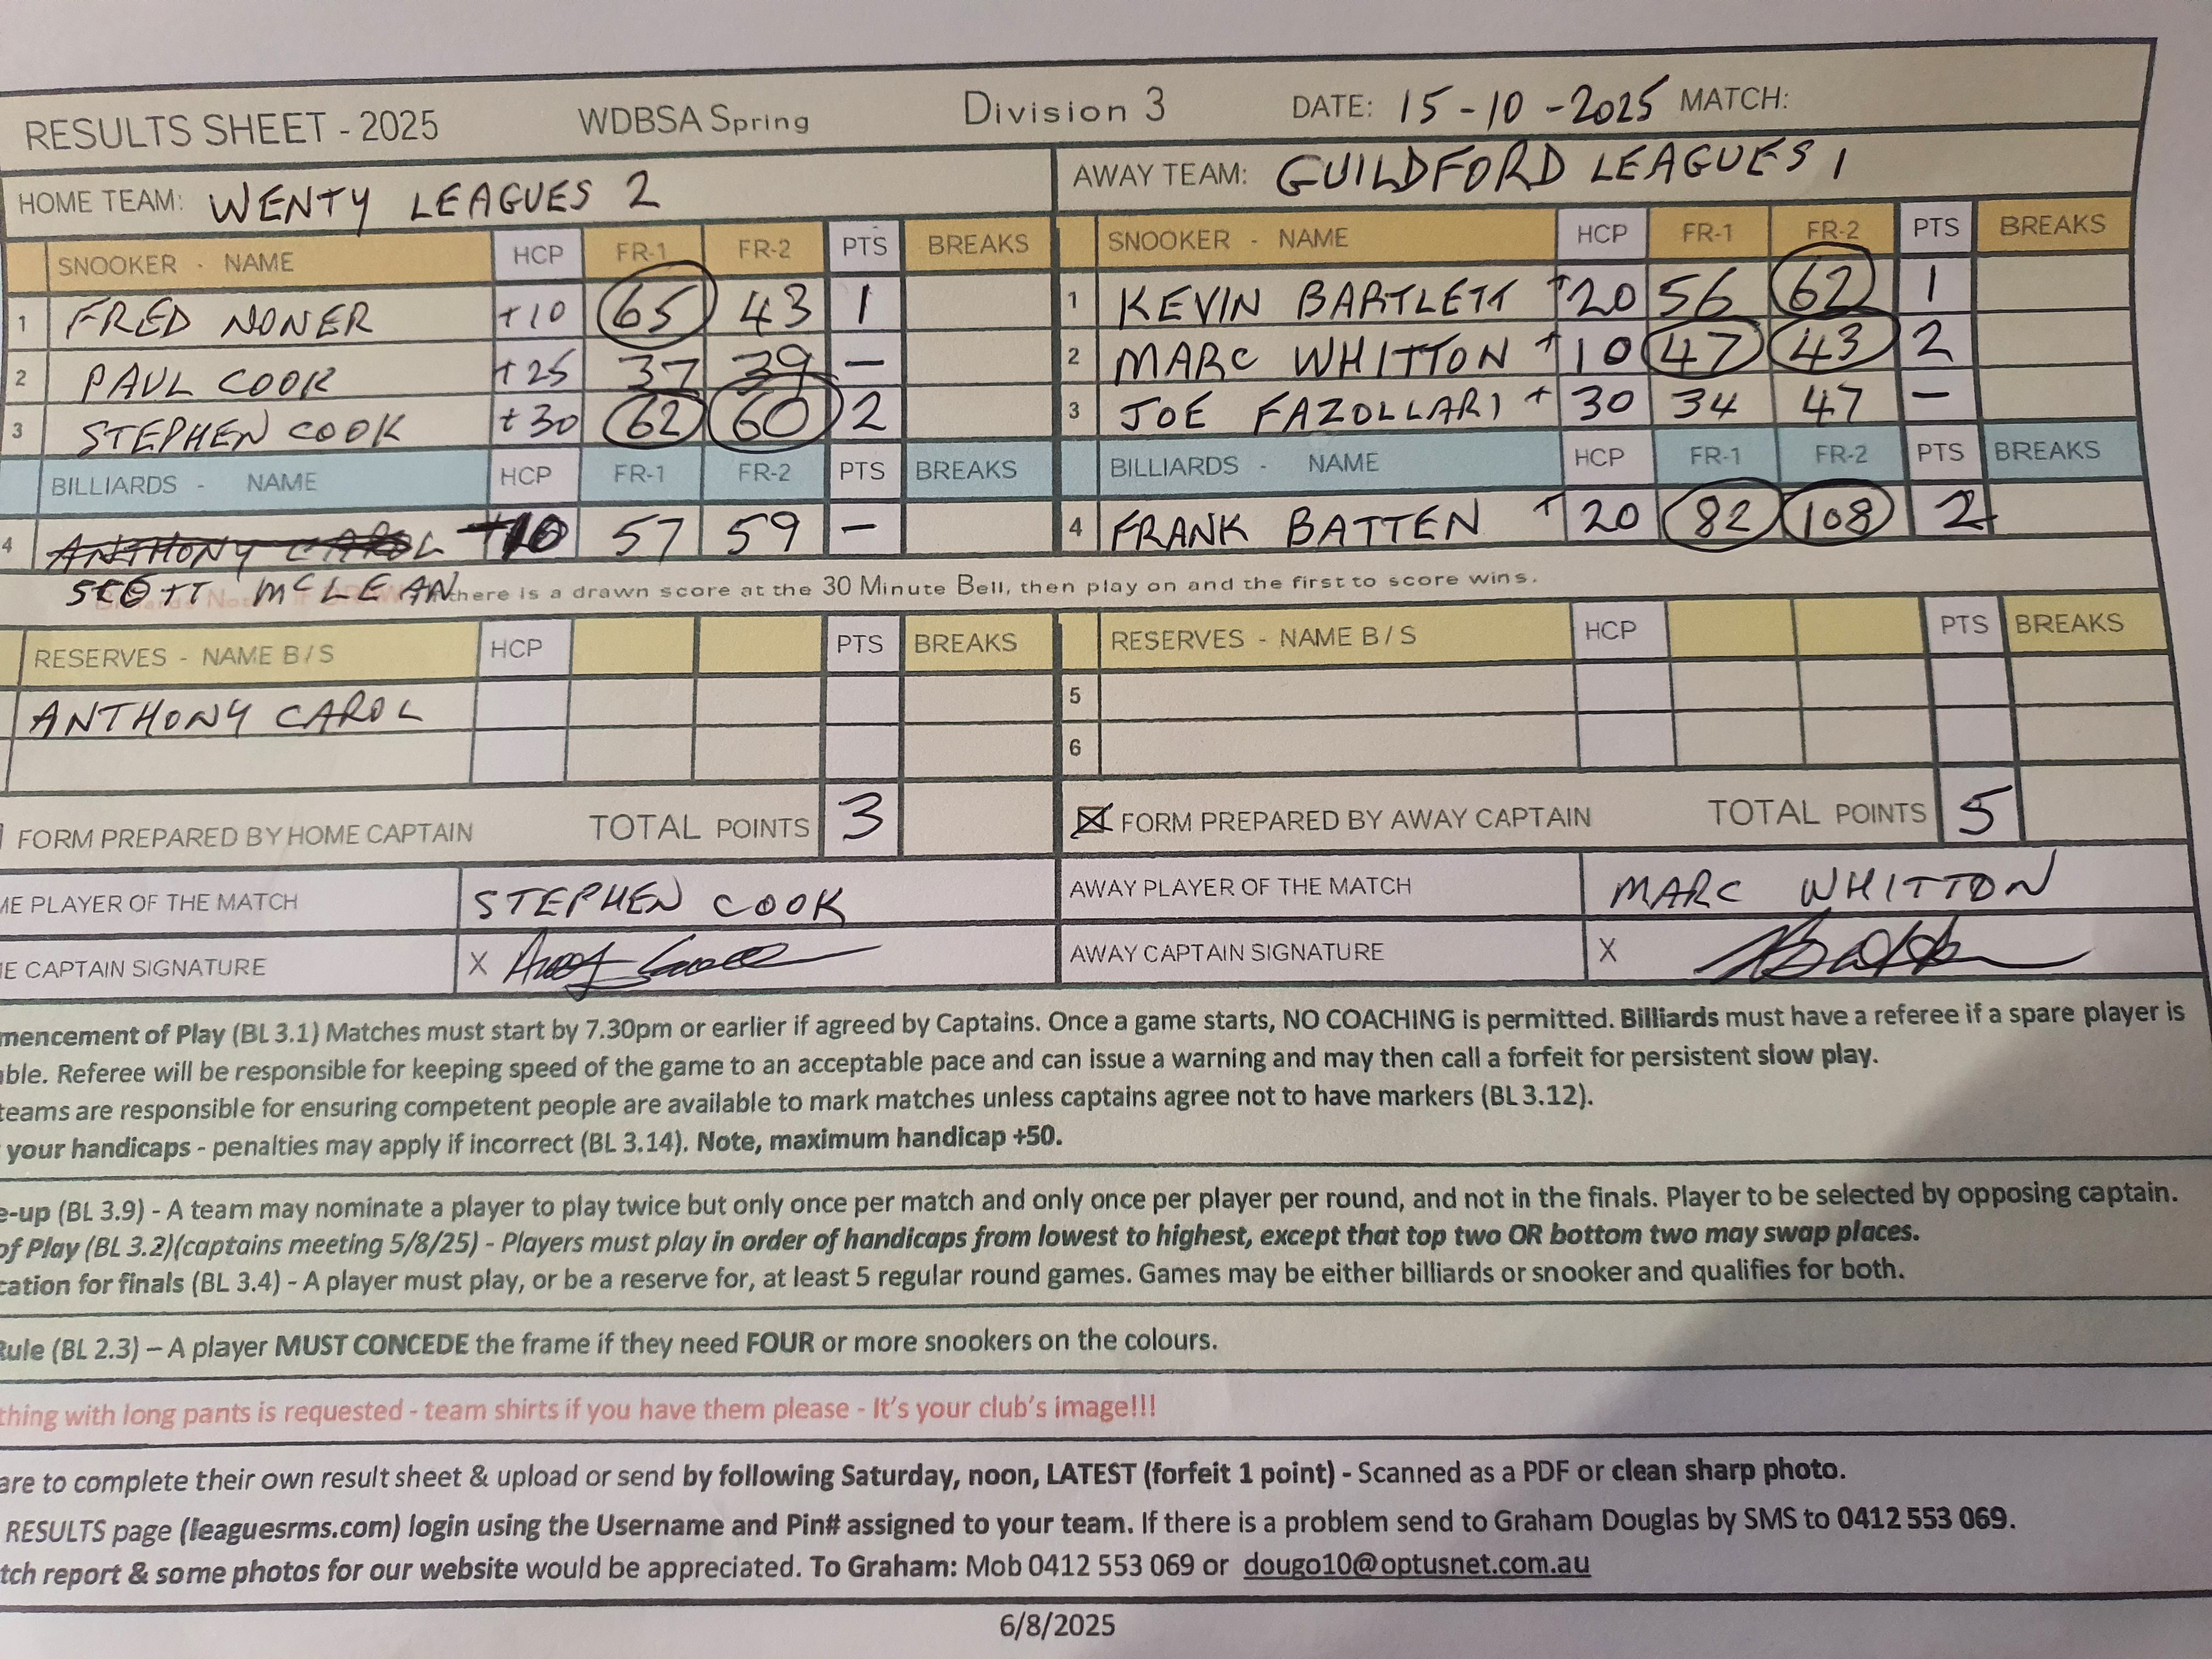 RESULTS SHEET - 2025 WDBSA Spring Division 3 DATE: 15-10-2025 MATCH:
HOME TEAM: WENTY LEAGUES 2 AWAY TEAM: GUILDFORD LEAGUES 1
SNOOKER - NAME HCP FR-1 FR-2 PTS BREAKS SNOOKER - NAME HCP FR-1 FR-2 PTS BREAKS
1 FRED NONER +10 65 43 1 1 KEVIN BARTLETT +20 56 62 1
2 PAUL COOK +25 37 39 — 2 MARC WHITTON +10 47 43 2
3 STEPHEN COOK +30 62 60 2 3 JOE FAZOLLARI +30 34 47 —
BILLIARDS - NAME HCP FR-1 FR-2 PTS BREAKS BILLIARDS - NAME HCP FR-1 FR-2 PTS BREAKS
4 ANTHONY CAROL +10 57 59 — 4 FRANK BATTEN +20 82 108 2
SCOTT McLEAN there is a drawn score at the 30 Minute Bell, then play on and the first to score wins.
RESERVES - NAME B/S HCP PTS BREAKS RESERVES - NAME B/S HCP PTS BREAKS
ANTHONY CAROL 5
6
FORM PREPARED BY HOME CAPTAIN TOTAL POINTS 3 FORM PREPARED BY AWAY CAPTAIN TOTAL POINTS 5
ME PLAYER OF THE MATCH STEPHEN COOK AWAY PLAYER OF THE MATCH MARC WHITTON
E CAPTAIN SIGNATURE X AWAY CAPTAIN SIGNATURE X
mencement of Play (BL 3.1) Matches must start by 7.30pm or earlier if agreed by Captains. Once a game starts, NO COACHING is permitted. Billiards must have a referee if a spare player is
able. Referee will be responsible for keeping speed of the game to an acceptable pace and can issue a warning and may then call a forfeit for persistent slow play.
teams are responsible for ensuring competent people are available to mark matches unless captains agree not to have markers (BL 3.12).
your handicaps - penalties may apply if incorrect (BL 3.14). Note, maximum handicap +50.
e-up (BL 3.9) - A team may nominate a player to play twice but only once per match and only once per player per round, and not in the finals. Player to be selected by opposing captain.
of Play (BL 3.2)(captains meeting 5/8/25) - Players must play in order of handicaps from lowest to highest, except that top two OR bottom two may swap places.
cation for finals (BL 3.4) - A player must play, or be a reserve for, at least 5 regular round games. Games may be either billiards or snooker and qualifies for both.
Rule (BL 2.3) – A player MUST CONCEDE the frame if they need FOUR or more snookers on the colours.
thing with long pants is requested - team shirts if you have them please - It's your club's image!!!
are to complete their own result sheet & upload or send by following Saturday, noon, LATEST (forfeit 1 point) - Scanned as a PDF or clean sharp photo.
RESULTS page (leaguesrms.com) login using the Username and Pin# assigned to your team. If there is a problem send to Graham Douglas by SMS to 0412 553 069.
tch report & some photos for our website would be appreciated. To Graham: Mob 0412 553 069 or dougo10@optusnet.com.au
6/8/2025